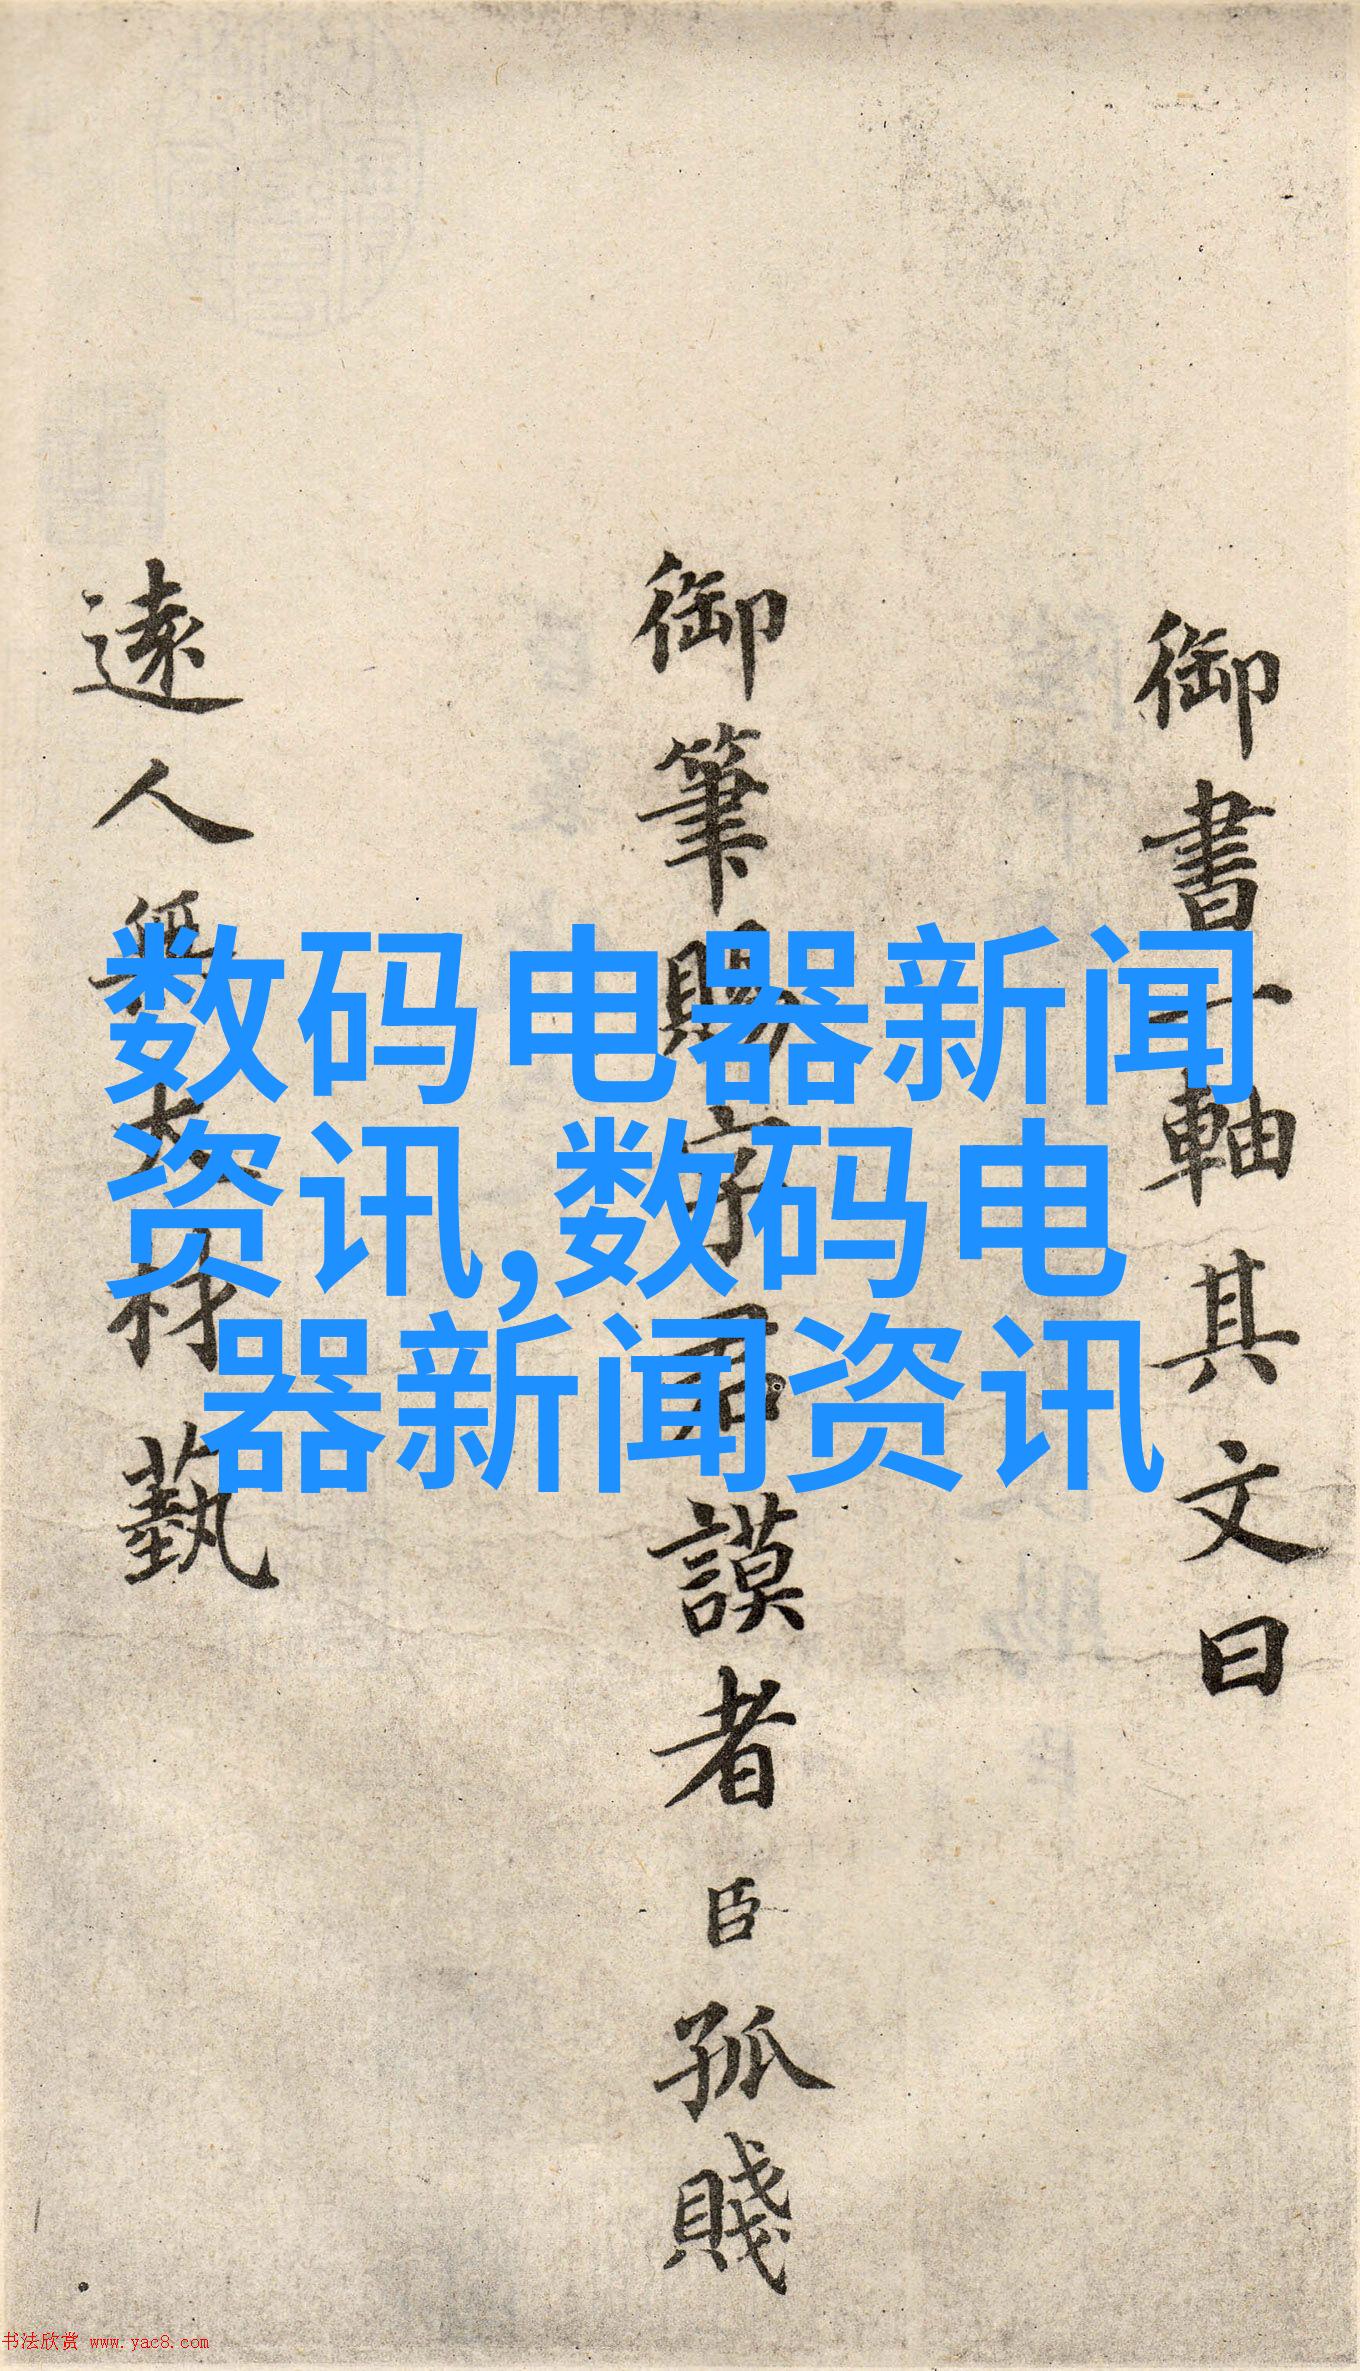 御書一軸其文曰
御筆賜字君謨者臣孤賤
遠人無大材藝
数码电器新闻
资讯,数码电
器新闻资讯
书法欣赏 www.yac8.com